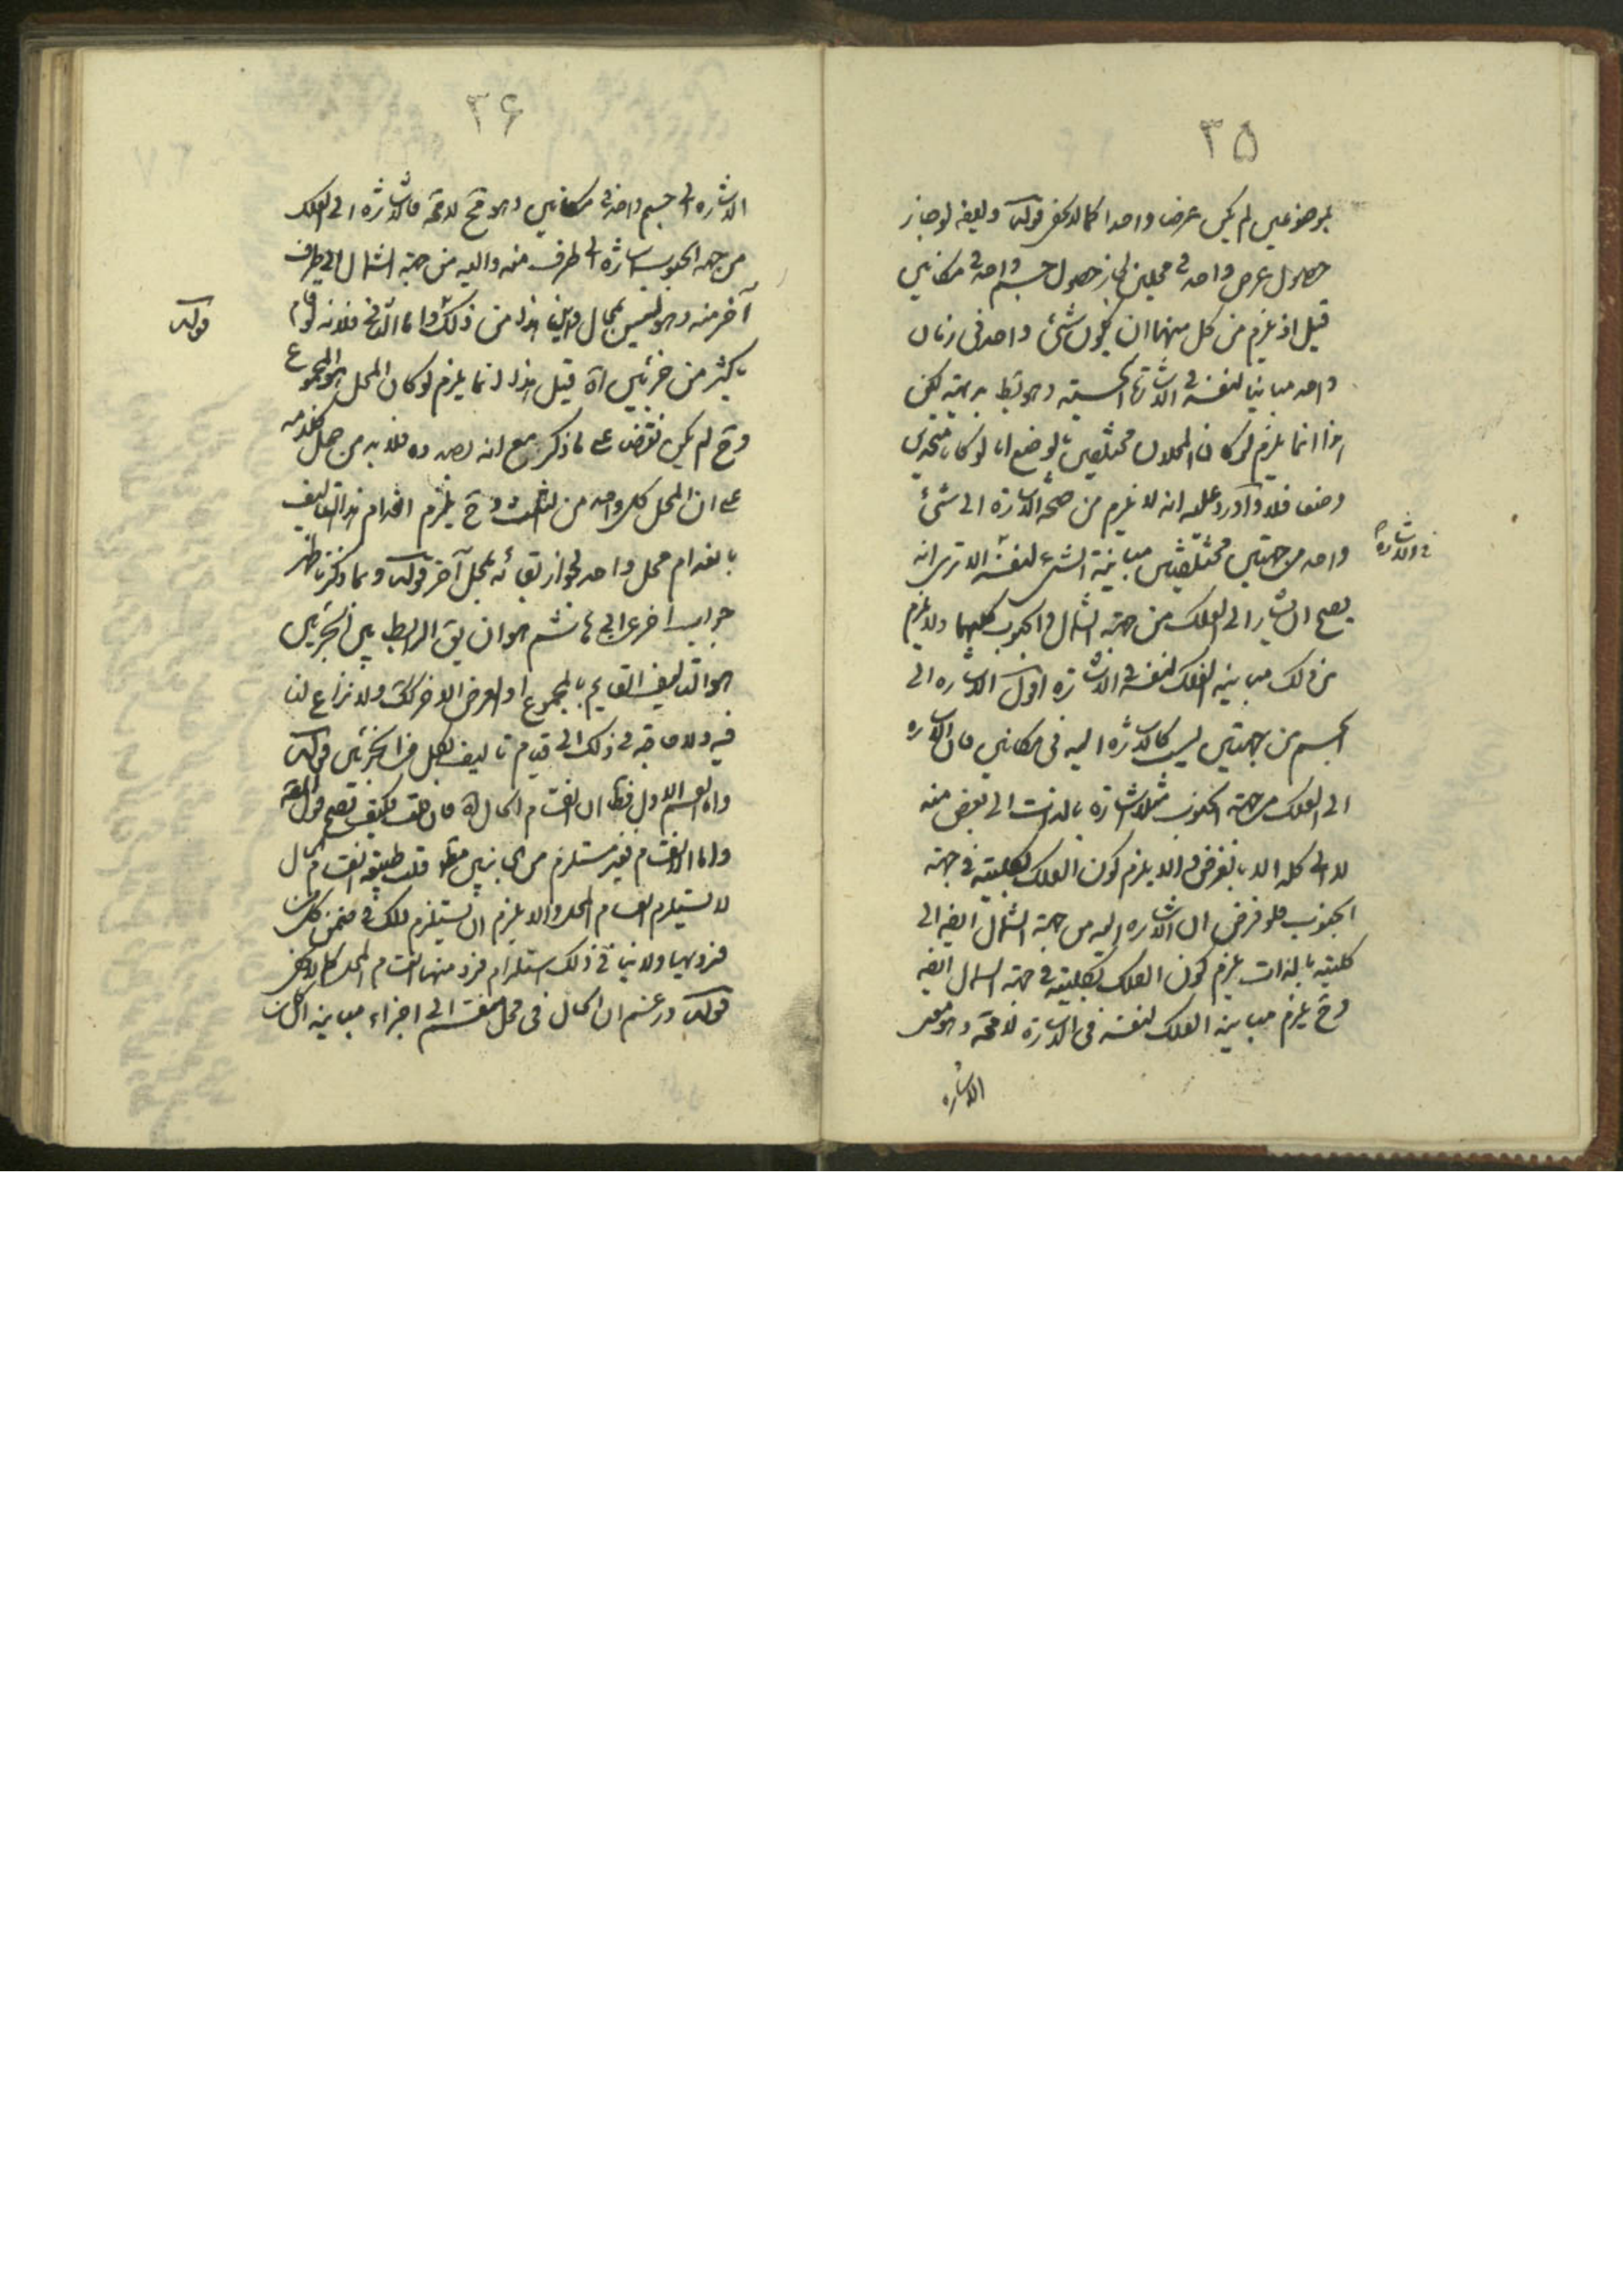 ٣٥
بموضوعين لم يكن عرضا واحدا كما لا يخفى قوله وايضا لو جاز
حصول عرض واحد في محلين لجاز حصول جسم واحد في مكانين
قيل اذ يلزم من كل منهما ان يكون شئ واحد في زمان
واحد مباينا لنفسه في الاشارة الحسية وهو بط بديهة لكن
هذا انما يلزم لو كان المحلان مختلفين بالوضع اما لو كانا متحدين
وضعا فلا واورد عليه انه لا يلزم من صحة الاشارة الى شئ
واحد من جهتين مختلفتين مباينة الشئ لنفسه الا ترى انه
في الاشارة
يصح ان يشار الى الفلك من جهة الشمال والجنوب كليهما ولا يلزم
من ذلك مباينة الفلك لنفسه في الاشارة اقول الاشارة الى
الجسم من جهتين ليس كالاشارة اليه في مكانين فان الاشارة
الى الفلك من جهة الجنوب مثلا اشارة بالذات الى بعض منه
لا الى كله الا بالعرض والا يلزم كون الفلك بكليته في جهة
الجنوب فلو فرض ان الاشارة اليه من جهة الشمال ايضا الى
كليته بالذات يلزم كون الفلك بكليته في جهة الشمال ايضا
وح يلزم مباينة الفلك لنفسه في الاشارة لا محة وهو معنى
الاشارة
٣۶
الاشارة الى جسم واحد في مكانين وهو مح لا محة فالاشارة الى الفلك
من جهة الجنوب اشارة الى طرف منه واليه من جهة الشمال الى طرف
آخر منه وهو ليس بمحال واين هذا من ذلك واما الثاني فلانه لو قام
قوله
باكثر من جزئين اه قيل هذا انما يلزم لو كان المحل هو المجموع
وح لم يكن نقض على ما ذكر مع انه بصدده فلا بد من حمل كلامه
على ان المحل كل واحد من الثلث وح يلزم انعدام هذا التاليف
بانعدام محل واحد لجواز بقائه بمحل آخر قوله وبما ذكرنا ظهر
جواب آخر عن ابي هاشم هو ان يق الرابط بين الجزئين
هو التاليف القايم بالمجموع او العرض الاخر كك ولا نزاع لنا
فيه ولا حاجة في ذلك الى قيام تاليف بكل من الجزئين قوله
واما القسم الاول فظ ان انقسام الحال اه فان قلت فكيف يصح قول المص
واما الانقسام فغير مستلزم من الجانبين قلت طبيعة انقسام الحال
لا يستلزم انقسام المحل والا يلزم ان يستلزم ذلك في ضمن كل من
فرديها ولا ينافي ذلك استلزام فرد منها انقسام المحل كما لا يخفى
قوله وزعم ان الحال في محل منقسم الى اجزاء مباينة